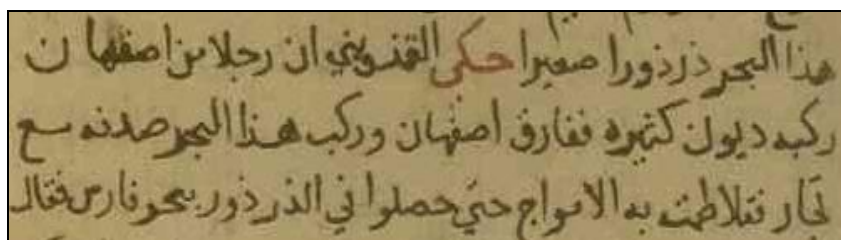 هذا البحر ذرذورا صغيرا حكى القزويني ان رجلا من اصفهان
ركبه ديون كثيره ففارق اصفهان وركب هذا البحر صدفه مع
تجار فتلاطمت به الامواج حتي حصلوا في الذرذور ببحر فارس فقال